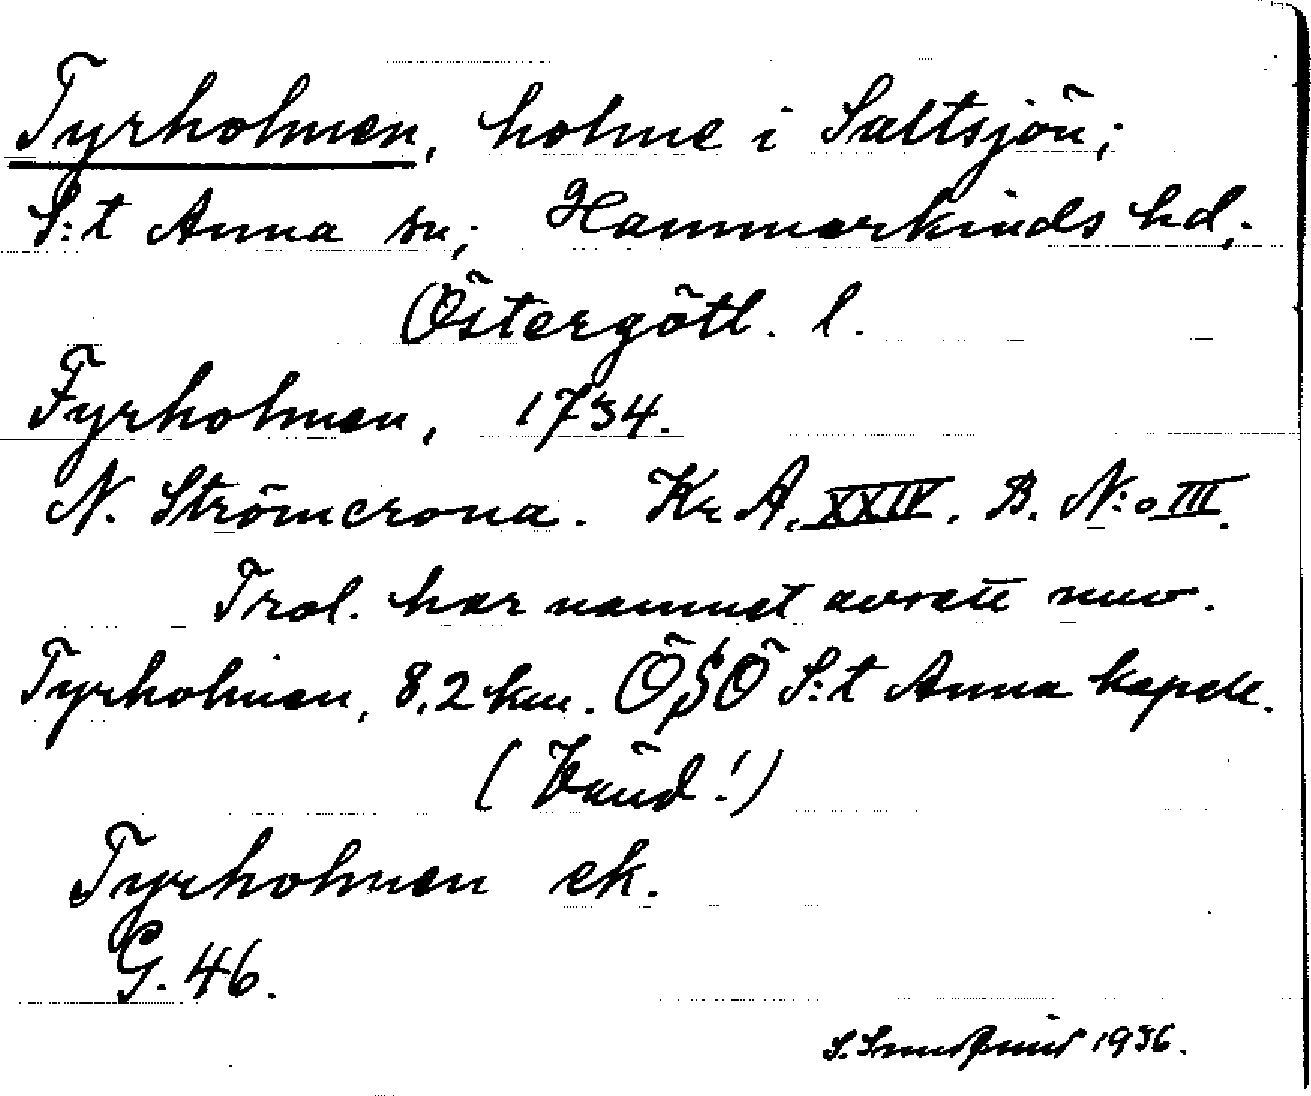 Tyrholmen, holme i Saltsjön;
S:t Anna sn; Hammarkinds hd;
Östergötl. l.
Fyrholmen, 1734.
N. Strömcrona. Kr. A. XXIV. B. N:o III.
Trol. har namnet avsett nuv.
Tyrholmen, 8,2 km. ÖSÖ S:t Anna kapell.
(Vänd!)
Tyrholmen ek.
G. 46.
S. 1936.